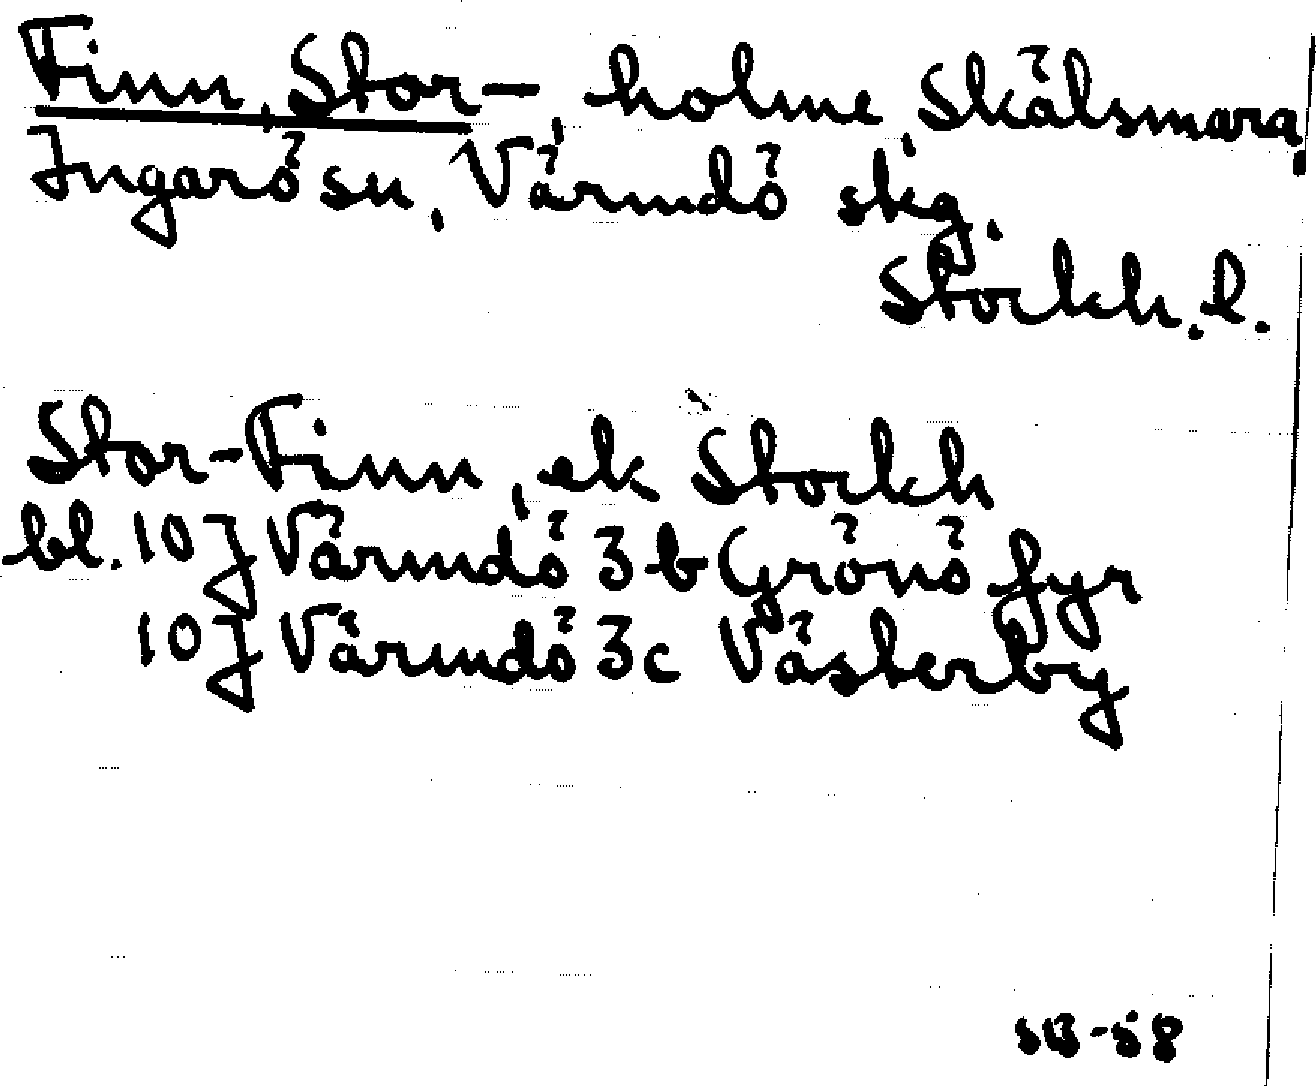 Finn, Stor-, holme, Skälsmara,
Ingarö sn, Värmdö skg.
Stockh. l.
Stor-Finn, ek Stockh
bl. 10J Värmdö 3b Grönö fyr
10J Värmdö 3c Västerby
SB-58